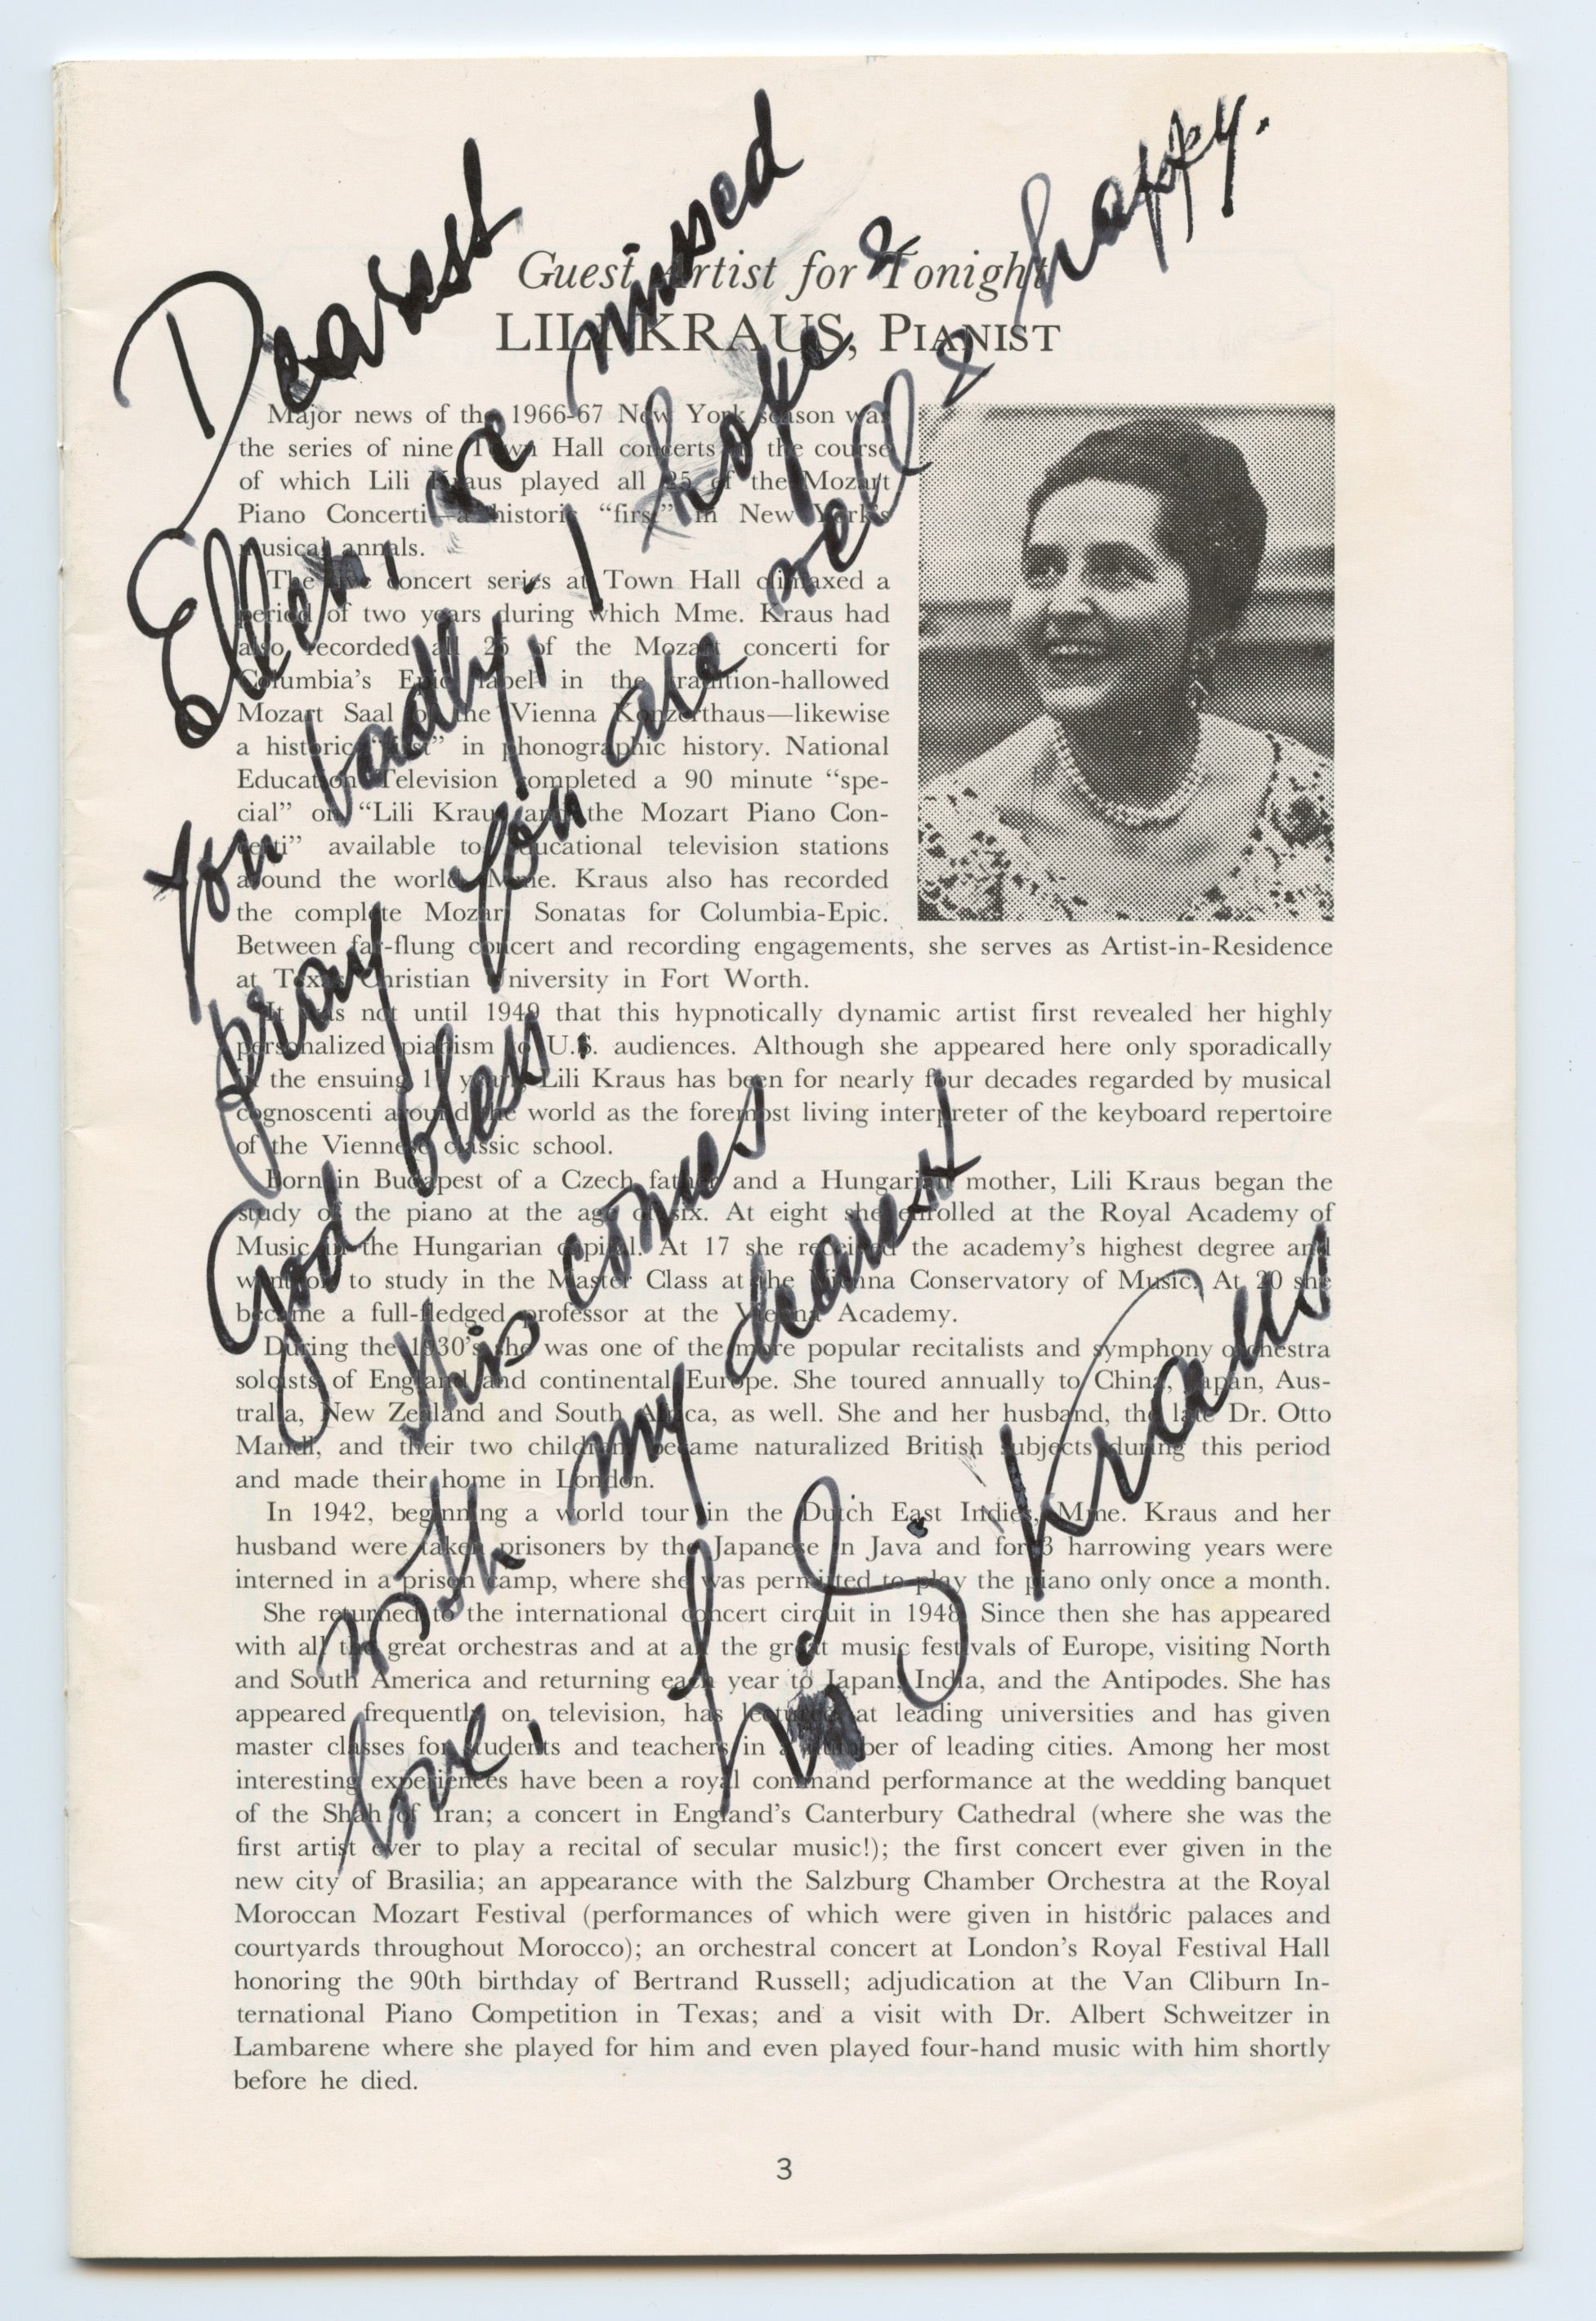 Guest Artist for Tonight
LILI KRAUS, PIANIST
Major news of the 1966-67 New York season was
the series of nine Town Hall concerts in the course
of which Lili Kraus played all 25 of the Mozart
Piano Concerti—a historic “first” in New York's
musical annals.
The live concert series at Town Hall climaxed a
period of two years during which Mme. Kraus had
also recorded all 25 of the Mozart concerti for
Columbia's Epic label in the tradition-hallowed
Mozart Saal of the Vienna Konzerthaus—likewise
a historic “first” in phonographic history. National
Education Television completed a 90 minute “spe-
cial” on “Lili Kraus and the Mozart Piano Con-
certi” available to educational television stations
around the world. Mme. Kraus also has recorded
the complete Mozart Sonatas for Columbia-Epic.
Between far-flung concert and recording engagements, she serves as Artist-in-Residence
at Texas Christian University in Fort Worth.
It was not until 1949 that this hypnotically dynamic artist first revealed her highly
personalized pianism to U.S. audiences. Although she appeared here only sporadically
in the ensuing years, Lili Kraus has been for nearly four decades regarded by musical
cognoscenti around the world as the foremost living interpreter of the keyboard repertoire
of the Viennese classic school.
Born in Budapest of a Czech father and a Hungarian mother, Lili Kraus began the
study of the piano at the age of six. At eight she enrolled at the Royal Academy of
Music in the Hungarian capital. At 17 she received the academy's highest degree and
went on to study in the Master Class at the Vienna Conservatory of Music. At 20 she
became a full-fledged professor at the Vienna Academy.
During the 1930's she was one of the more popular recitalists and symphony orchestra
soloists of England and continental Europe. She toured annually to China, Japan, Aus-
tralia, New Zealand and South Africa, as well. She and her husband, the late Dr. Otto
Mandl, and their two children, became naturalized British subjects during this period
and made their home in London.
In 1942, beginning a world tour in the Dutch East Indies, Mme. Kraus and her
husband were taken prisoners by the Japanese in Java and for 3 harrowing years were
interned in a prison camp, where she was permitted to play the piano only once a month.
She returned to the international concert circuit in 1948. Since then she has appeared
with all the great orchestras and at all the great music festivals of Europe, visiting North
and South America and returning each year to Japan, India, and the Antipodes. She has
appeared frequently on television, has lectured at leading universities and has given
master classes for students and teachers in a number of leading cities. Among her most
interesting experiences have been a royal command performance at the wedding banquet
of the Shah of Iran; a concert in England's Canterbury Cathedral (where she was the
first artist ever to play a recital of secular music!); the first concert ever given in the
new city of Brasilia; an appearance with the Salzburg Chamber Orchestra at the Royal
Moroccan Mozart Festival (performances of which were given in historic palaces and
courtyards throughout Morocco); an orchestral concert at London's Royal Festival Hall
honoring the 90th birthday of Bertrand Russell; adjudication at the Van Cliburn In-
ternational Piano Competition in Texas; and a visit with Dr. Albert Schweitzer in
Lambarene where she played for him and even played four-hand music with him shortly
before he died.
3
Dearest
Ellen, we missed
you badly; I hope &
pray you are well & happy.
God bless!
this comes
with my dearest
love,
Lili Kraus